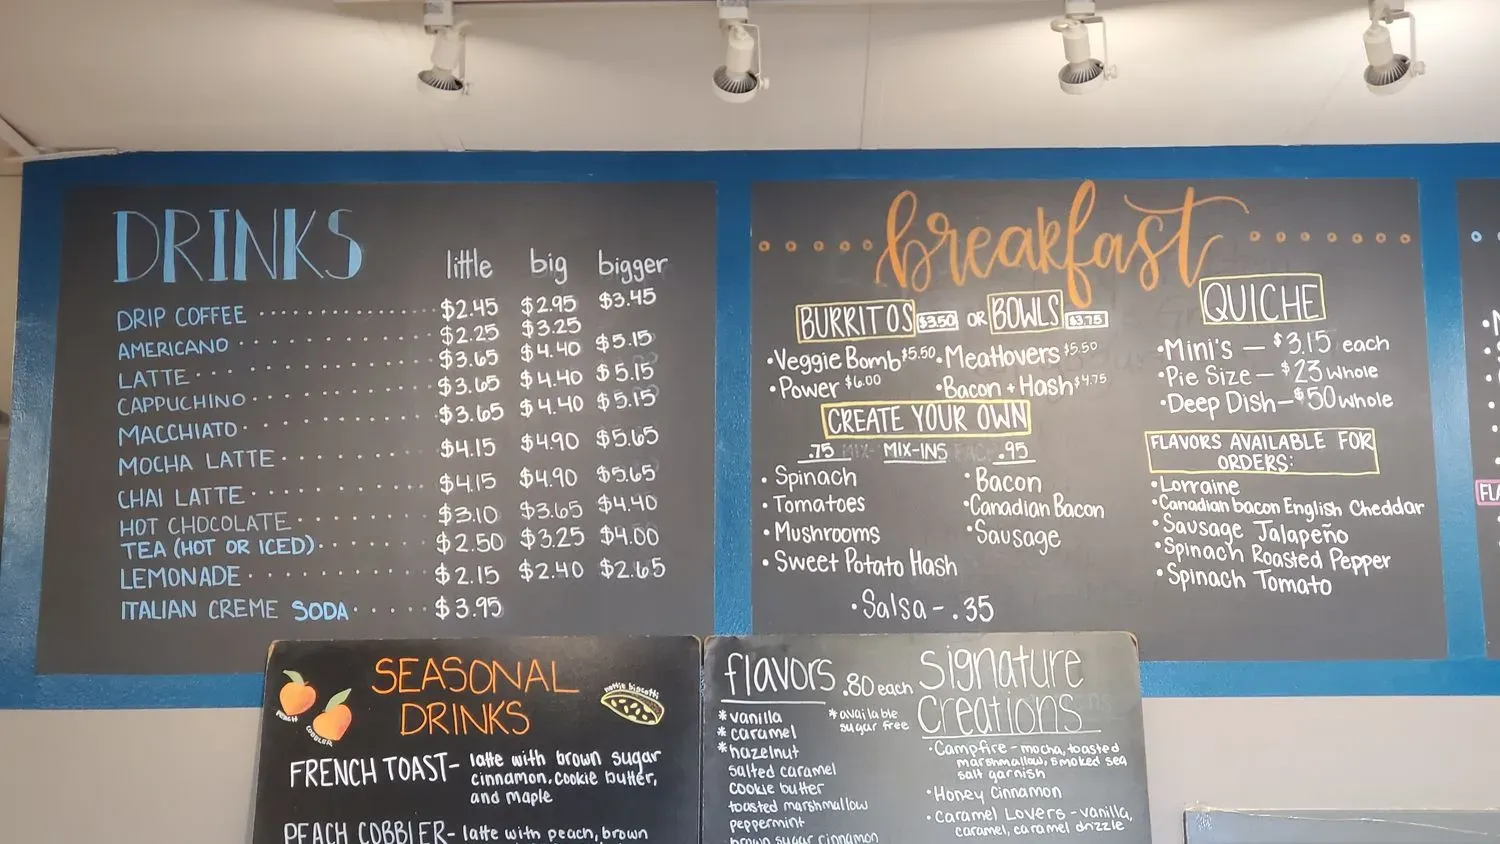 DRINKS
little big bigger
DRIP COFFEE $2.45 $2.95 $3.45
AMERICANO $2.25 $3.25
LATTE $3.65 $4.40 $5.15
CAPPUCHINO $3.65 $4.40 $5.15
MACCHIATO $3.65 $4.40 $5.15
MOCHA LATTE $4.15 $4.90 $5.65
CHAI LATTE $4.15 $4.90 $5.65
HOT CHOCOLATE $3.10 $3.65 $4.40
TEA (HOT OR ICED) $2.50 $3.25 $4.00
LEMONADE $2.15 $2.40 $2.65
ITALIAN CREME SODA $3.95
breakfast
BURRITOS $3.50 OR BOWLS $3.75
•Veggie Bomb $5.50 •Meatlovers $5.50
•Power $6.00 •Bacon + Hash $4.75
CREATE YOUR OWN
.75 MIX-INS .95
• Spinach
• Tomatoes
• Mushrooms
• Sweet Potato Hash
•Bacon
•Canadian Bacon
•Sausage
•Salsa - .35
QUICHE
•Mini's — $3.15 each
•Pie Size — $23 whole
•Deep Dish — $50 whole
FLAVORS AVAILABLE FOR
ORDERS:
•Lorraine
•Canadian bacon English Cheddar
•Sausage Jalapeño
•Spinach Roasted Pepper
•Spinach Tomato
SEASONAL
DRINKS
PEACH
COBBLER
FRENCH TOAST- latte with brown sugar
cinnamon, cookie butter,
and maple
PEACH COBBLER- latte with peach, brown
flavors .80 each
*available
sugar free
*vanilla
*caramel
*hazelnut
salted caramel
cookie butter
toasted marshmallow
peppermint
brown sugar cinnamon
signature
creations
•Campfire - mocha, toasted
marshmallow, smoked sea
salt garnish
•Honey Cinnamon
•Caramel Lovers - vanilla,
caramel, caramel drizzle